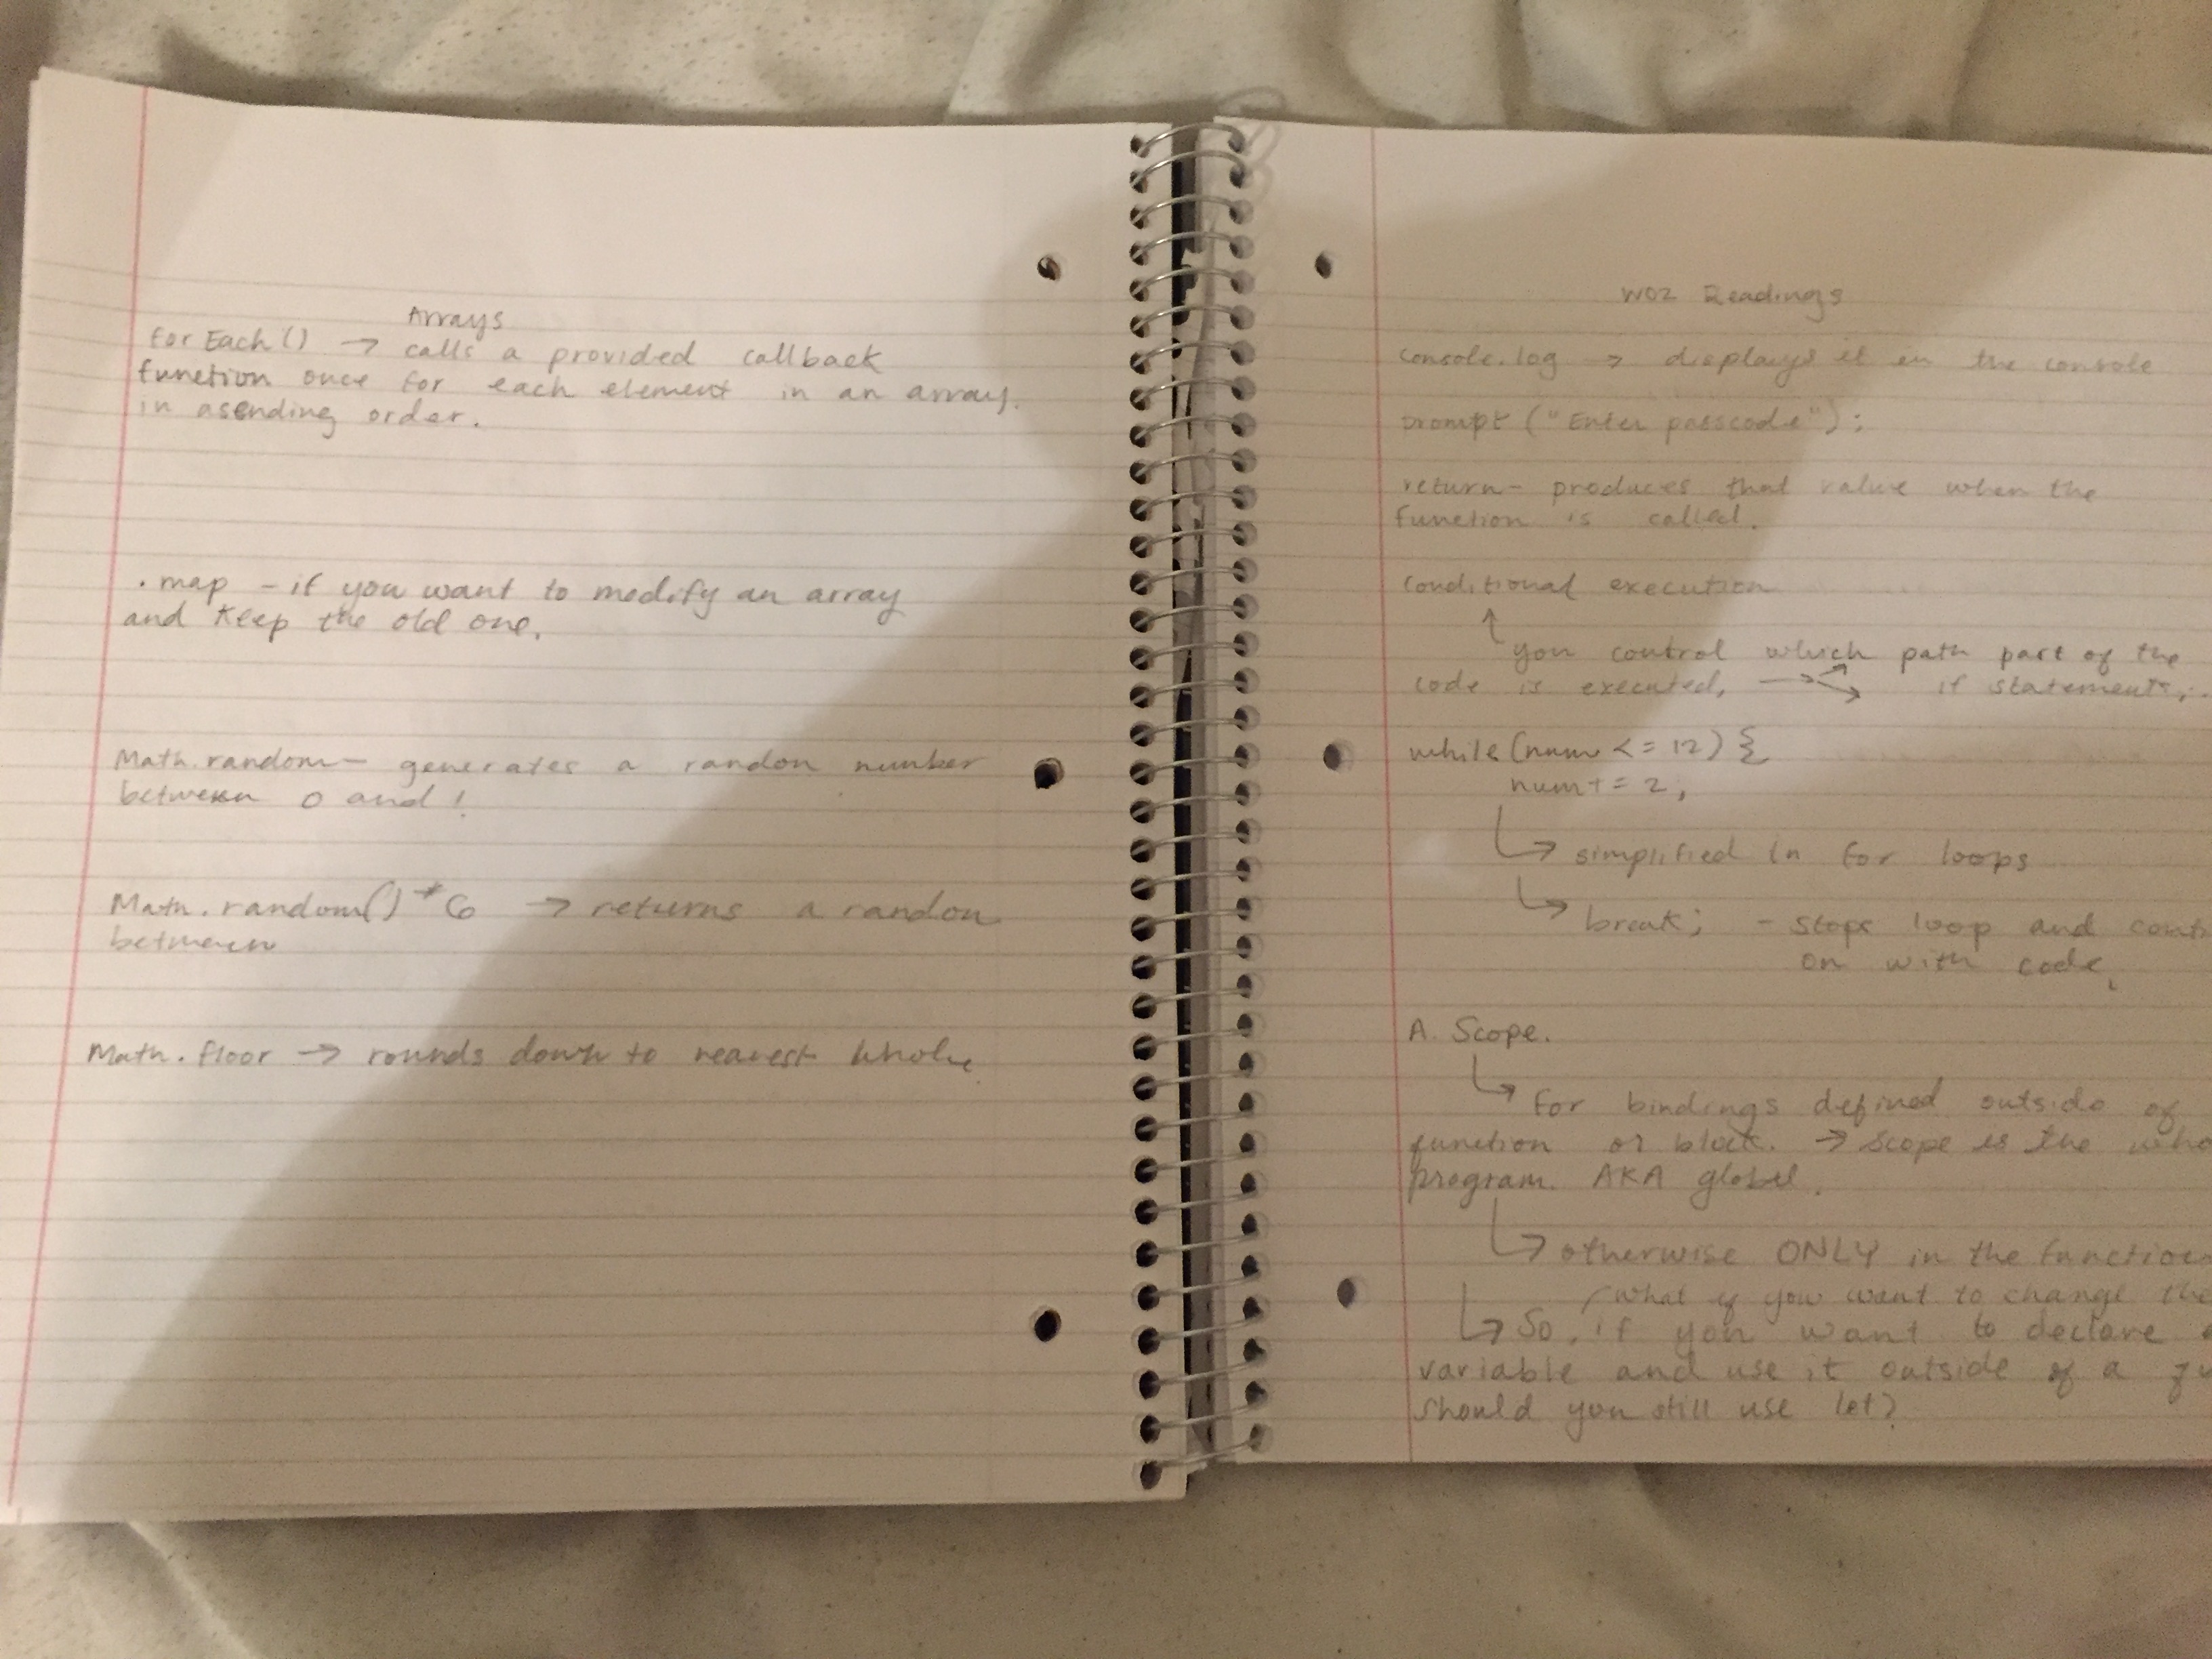 Arrays
forEach() → calls a provided callback
function once for each element in an array.
in asending order.
.map - if you want to modify an array
and keep the old one.
Math.random - generates a random number
between 0 and 1
Math.random()*6 → returns a random
between
Math.floor → rounds down to nearest whole
W02 Readings
console.log → displays it on the console
prompt("Enter passcode");
return - produces that value when the
function is called.
conditional execution
↑ you control which path part of the
code is executed, → if statements
while(num <= 12) {
num += 2;
↳ simplified in for loops
↳ break; - stops loop and
on with code.
A Scope.
↳ for bindings defined outside of
function or block. → scope is the
program. AKA global.
↳ otherwise ONLY in the function
(what if you want to change the
↳ So, if you want to declare a
variable and use it outside of a
should you still use let?